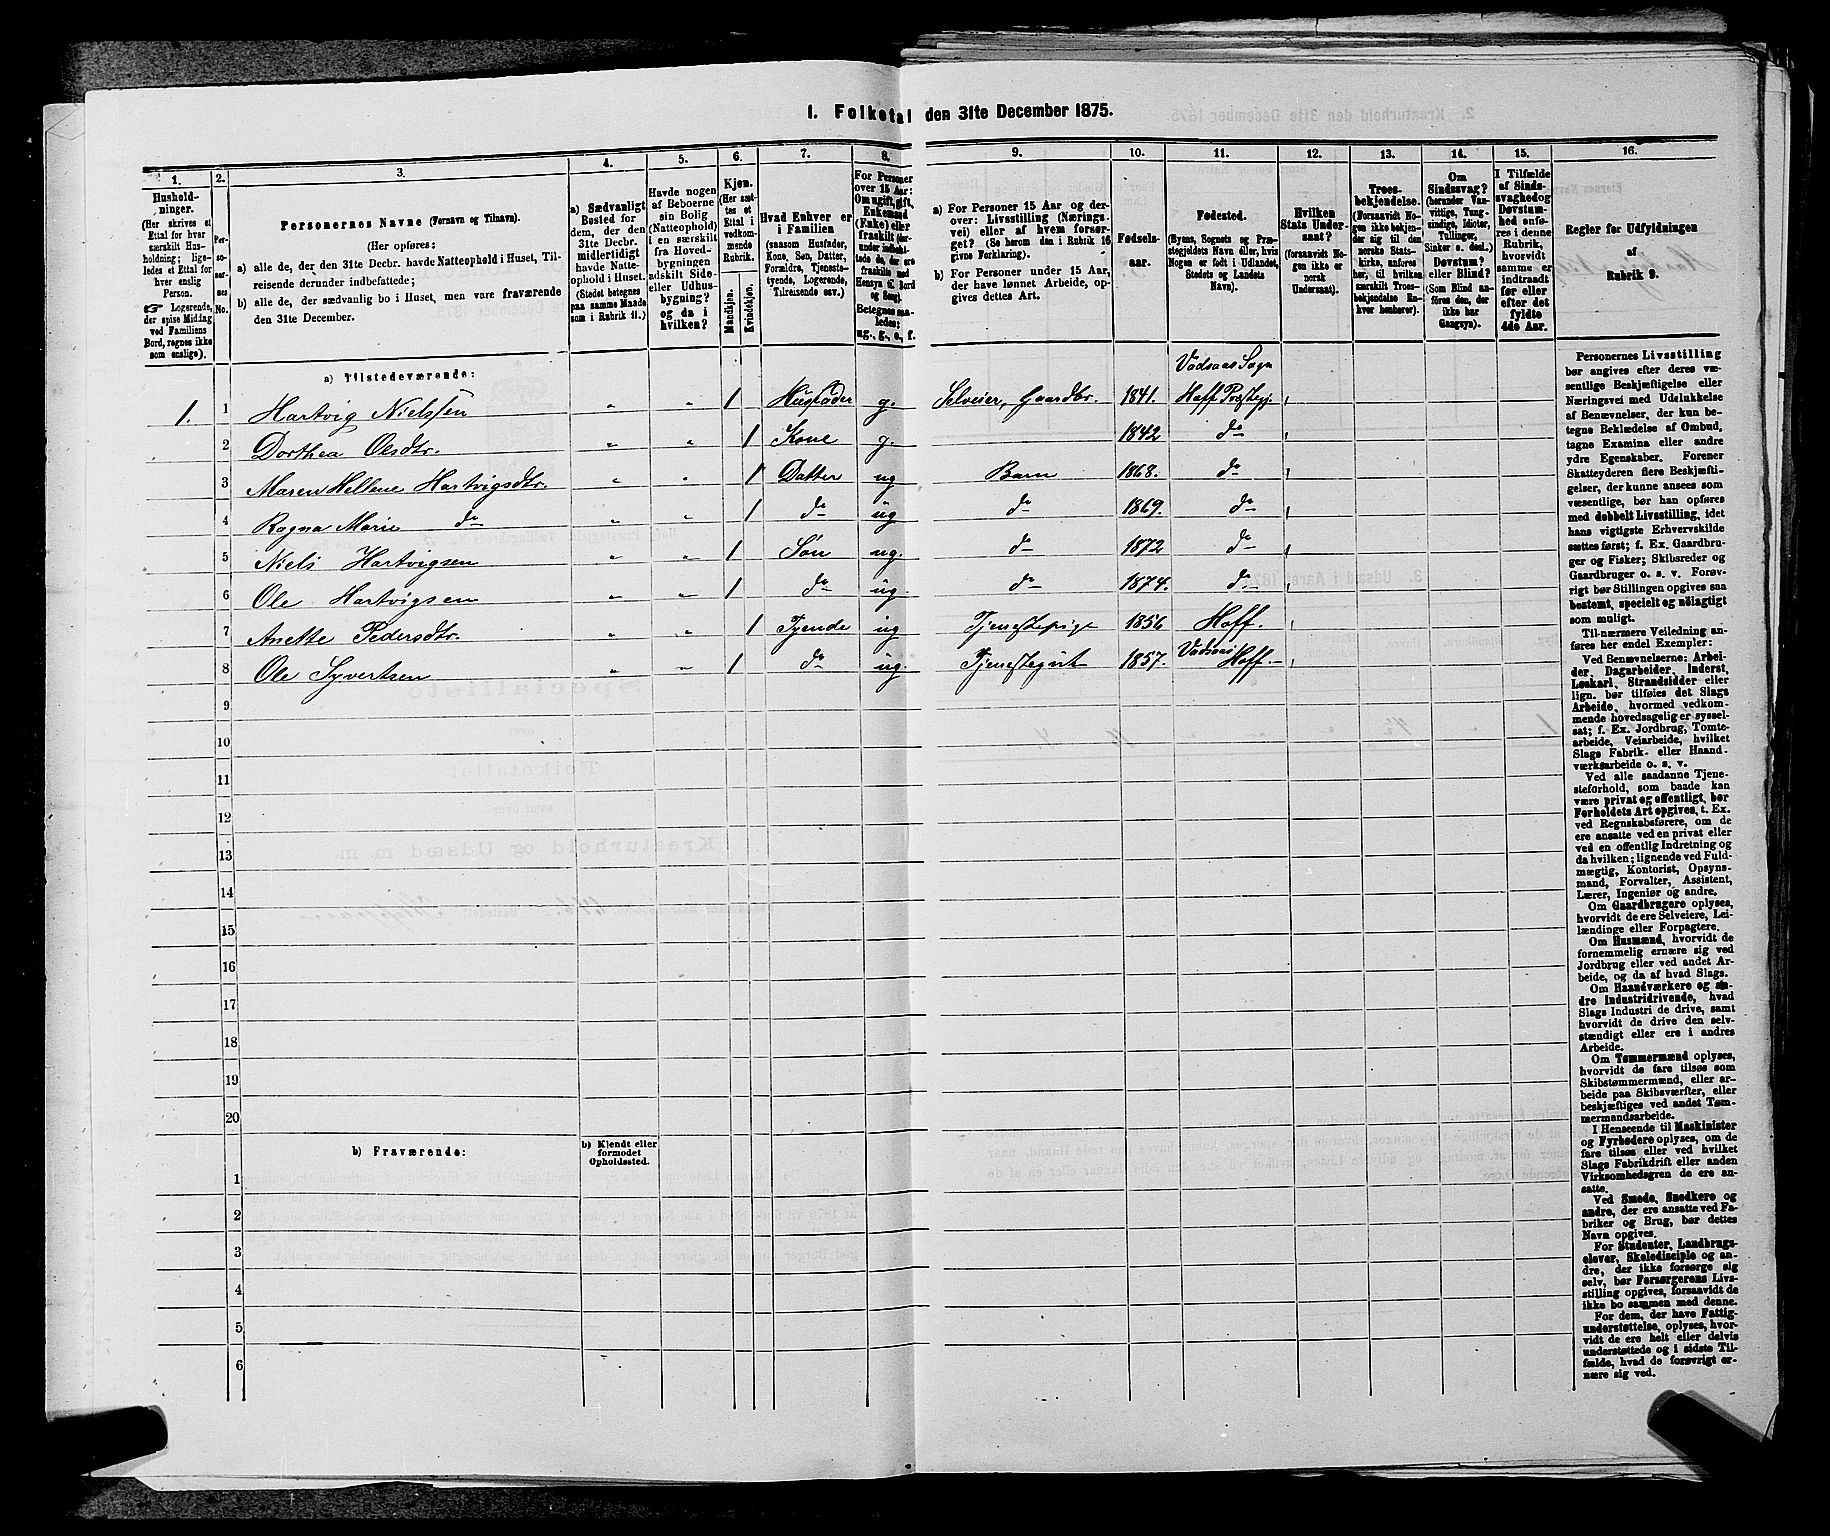 1. Folketal den 31te December 1875.
1. 2. 3. 4. 5. 6. 7. 8. 9. 10. 11. 12. 13. 14. 15. 16.
Hushold-
ninger.
(Her skrives et
Ettal for hver
særskilt Hus-
holdning; lige-
ledes et Ettal for
hver enslig
Person.
☞ Logerende,
der spise Middag
ved Familiens
Bord, regnes ikke
som enslige).
Per-
so-
ner-
nes
No.
Personernes Navne (Fornavn og Tilnavn).
(Her opføres:
a) alle de, der den 31te Decbr. havde Natteophold i Huset, Til-
reisende derunder indbefattede;
b) alle de, der sædvanlig bo i Huset, men vare fraværende
den 31te December.
a) Sædvanligt
Bosted for
dem, der den
31te Decbr.
midlertidigt
havde Natte-
ophold i Huset.
(Stedet betegnes
paa samme Maade
som i Rubrik 11.)
Havde nogen
af Beboerne
sin Bolig
(Natteophold)
i en særskilt
fra Hoved-
bygningen
adskilt Side-
eller Udhus-
bygning?
og da i
hvilken?
Kjøn.
(Her sæt-
tes et
Ettal i
vedkom-
mende
Rubrik.
Mandkjøn.
Kvindekjøn.
Hvad Enhver er
i Familien
(saasom Husfader,
Kone, Søn, Datter,
Forældre, Tjeneste-
tyende, Logerende,
Tilreisende osv.)
For Personer
over 15 Aar:
Om ugift, gift,
Enkemand
(Enke) eller
fraskilt
Betegnes saa-
ledes:
ug., g., e., f.
a) For Personer 15 Aar og der-
over: Livsstilling (Nærings-
vei) eller af hvem forsør-
get? (Se herom den i Rubrik 16
givne Forklaring).
b) For Personer under 15 Aar,
der have lønnet Arbeide, op-
gives dettes Art.
Fødsels-
aar.
Fødested.
(Byens, Sognets og Præ-
stegjeldets Navn eller, hvis
Nogen er født i Udlandet,
Stedets og Landets
Navn).
Hvilken
Stats Under-
saat?
(forsaavidt No-
gen ikke er
norsk
Undersaat).
Troes-
bekjendelse.
(Forsaavidt No-
gen ikke bekjen-
der sig til den
norske Stats-
kirke, anføres
her, til hvilken
særskilt Troes-
bekjendelse En-
hver henhører).
Om
Sindssvag?
(herunder Van-
vittige, Tung-
sindige, Idioter,
Tullinger,
Sinker o. desl.)
Døvstum?
eller Blind?
(Som Blind an-
føres den, der
ikke har
Gangsyn).
I Tilfælde
af Sinds-
svaghed og
Døvstum-
hed anfø-
res i denne
Rubrik,
hvorvidt
samme er
indtraadt
før eller
efter det
fyldte
4de Aar.
Regler for Udfyldningen
af
Rubrik 9.
a) Tilstedeværende:
Vadsaas Sogn
1. 1 Hartvig Nielssen " " 1 Husfader g. Selveier, Gaardbr. 1841. Hoff Præstegj
2 Dorthea Olsdtr. " " 1 Kone g. 1842 do
3 Maren Hellene Hartvigsdtr. " " 1 Datter ug Barn 1868. do
4 Ragna Marie do " " 1 do ug do 1869. do
5 Niels Hartvigsen " " 1 Søn ug. do 1872 do
6 Ole Hartvigsen " " 1 do ug. do 1874. do
7 Anette Pedersdtr. " " 1 Tyende ug Tjenestepige 1856 Hoff.
8 Ole Syvertsen " " 1 do ug. Tjenestegut 1857. Hoff.
9
10
11
12
13
14
15
16
17
18
19
20
b) Fraværende:
b) Kjendt eller
formodet
Opholdssted.
1
2
3
4
5
6
Personernes Livsstilling
bør angives efter deres væ-
sentlige Beskjæftigelse eller
Næringsvei med Udelukkelse
af Benævnelser, der kun be-
tegne Beklædelse af Ombud,
tagne Examina eller andre
ydre Egenskaber. Forener
Skatteyderen flere Beskjæfti-
gelser, der kunne ansees som
væsentlige, bør han opføres
med dobbelt Livsstilling, idet
hans vigtigste Erhvervskilde
sættes først; f. Ex. Gaardbru-
ger og Fisker; Skibsreder og
Gaardbruger o. s. v. Forøv-
rigt bør Stillingen opgives saa
bestemt, specielt og nøiagtigt
som muligt.
Til nærmere Veiledning an-
føres her endel Exempler:
Ved Benævnelserne: Arbei-
der, Dagarbeider, Inderst,
Løskarl, Strandsidder eller
lign. bør tilføies det Slags
Arbeide, hvormed vedkom-
mende hovedsagelig er syssel-
sat; f. Ex. Jordbrug, Tomte-
arbeide, Veiarbeide, hvilket
Slags Fabrik- eller Haand-
værksarbeide o. s. v.
Ved alle saadanne Tjene-
steforhold, som baade kan
være privat og offentligt, bør
Forholdets Art opgives, t. Ex.
ved Regnskabsførere, om de
ere ansatte ved en privat eller
ved en offentlig Indretning og
da hvilken; lignende ved Fuld-
mægtig, Kontorist, Opsyns-
mand, Forvalter, Assistent,
Lærer, Ingeniør og andre.
Om Gaardbrugere oplyses,
hvorvidt de ere Selveiere, Lei-
lændinge eller Forpagtere.
Om Husmænd, hvorvidt de
fornemmelig ernære sig ved
Jordbrug eller ved andet Ar-
beide, og da af hvad Slags.
Om Haandværkere og an-
dre Industridrivende, hvad
Slags Industri de drive, samt
hvorvidt de drive den selv-
stændigt eller ere i andres
Arbeide.
Om Tømmermænd oplyses,
hvorvidt de fare tilsøs som
Skibstømmermænd, eller ar-
beide paa Skibsværfter, eller
beskjæftiges ved andet Tøm-
mermandsarbeide.
I Henseende til Maskinister
og Fyrbødere oplyses, om de
fare tilsøs eller ved hvilket
Slags Fabrikdrift eller anden
Virksomhedsgren de ere an-
satte.
Ved Smede, Snedkere og
andre, der ere ansatte ved Fa-
briker og Brug, bør dettes
Navn opgives.
For Studenter, Landbrugs-
elever, Skoledisciple og an-
dre, der ikke forsørge sig
selv, bør Forsørgerens Livs-
stilling opgives, forsaavidt de
ikke bo sammen med denne.
For dem, der have Fattig-
understøttelse, oplyses, hvor-
vidt de ere helt eller delvis
understøttede og i sidste Til-
fælde, hvad de forøvrigt er-
nære sig ved.